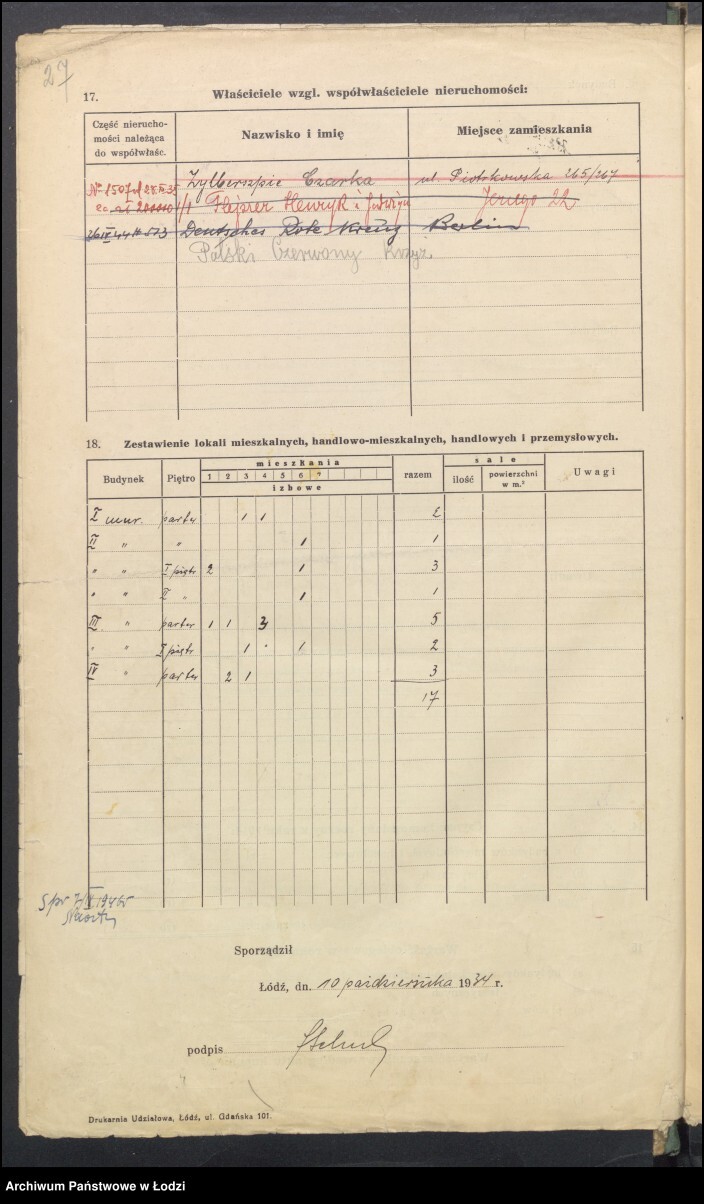 27
17. Właściciele wzgl. współwłaściciele nieruchomości:
Część nierucho-
mości należąca
do współwłaśc.
Nazwisko i imię
Miejsce zamieszkania
Zylberszpic Czarka ul. Piotrkowska 265/267
1/1 Flejszer Henryk i Jerzego 22
26 IV 44 Deutsches Rote Kreuz Berlin
Polski Czerwony Krzyż
18. Zestawienie lokali mieszkalnych, handlowo-mieszkalnych, handlowych i przemysłowych.
Budynek Piętro mieszkania razem sale Uwagi
1 2 3 4 5 6 7
izbowe
ilość powierzchni w m.²
I mur. parter 1 1 2
II " " 1 1
" " I piętr 2 1 3
" " II " 1 1
III " parter 1 1 3 5
" " I piętr 1 1 2
IV " parter 2 1 3
17
Sporządził
Łódź, dn. 10 października 1934 r.
podpis
Drukarnia Udziałowa, Łódź, ul. Gdańska 101.
Archiwum Państwowe w Łodzi